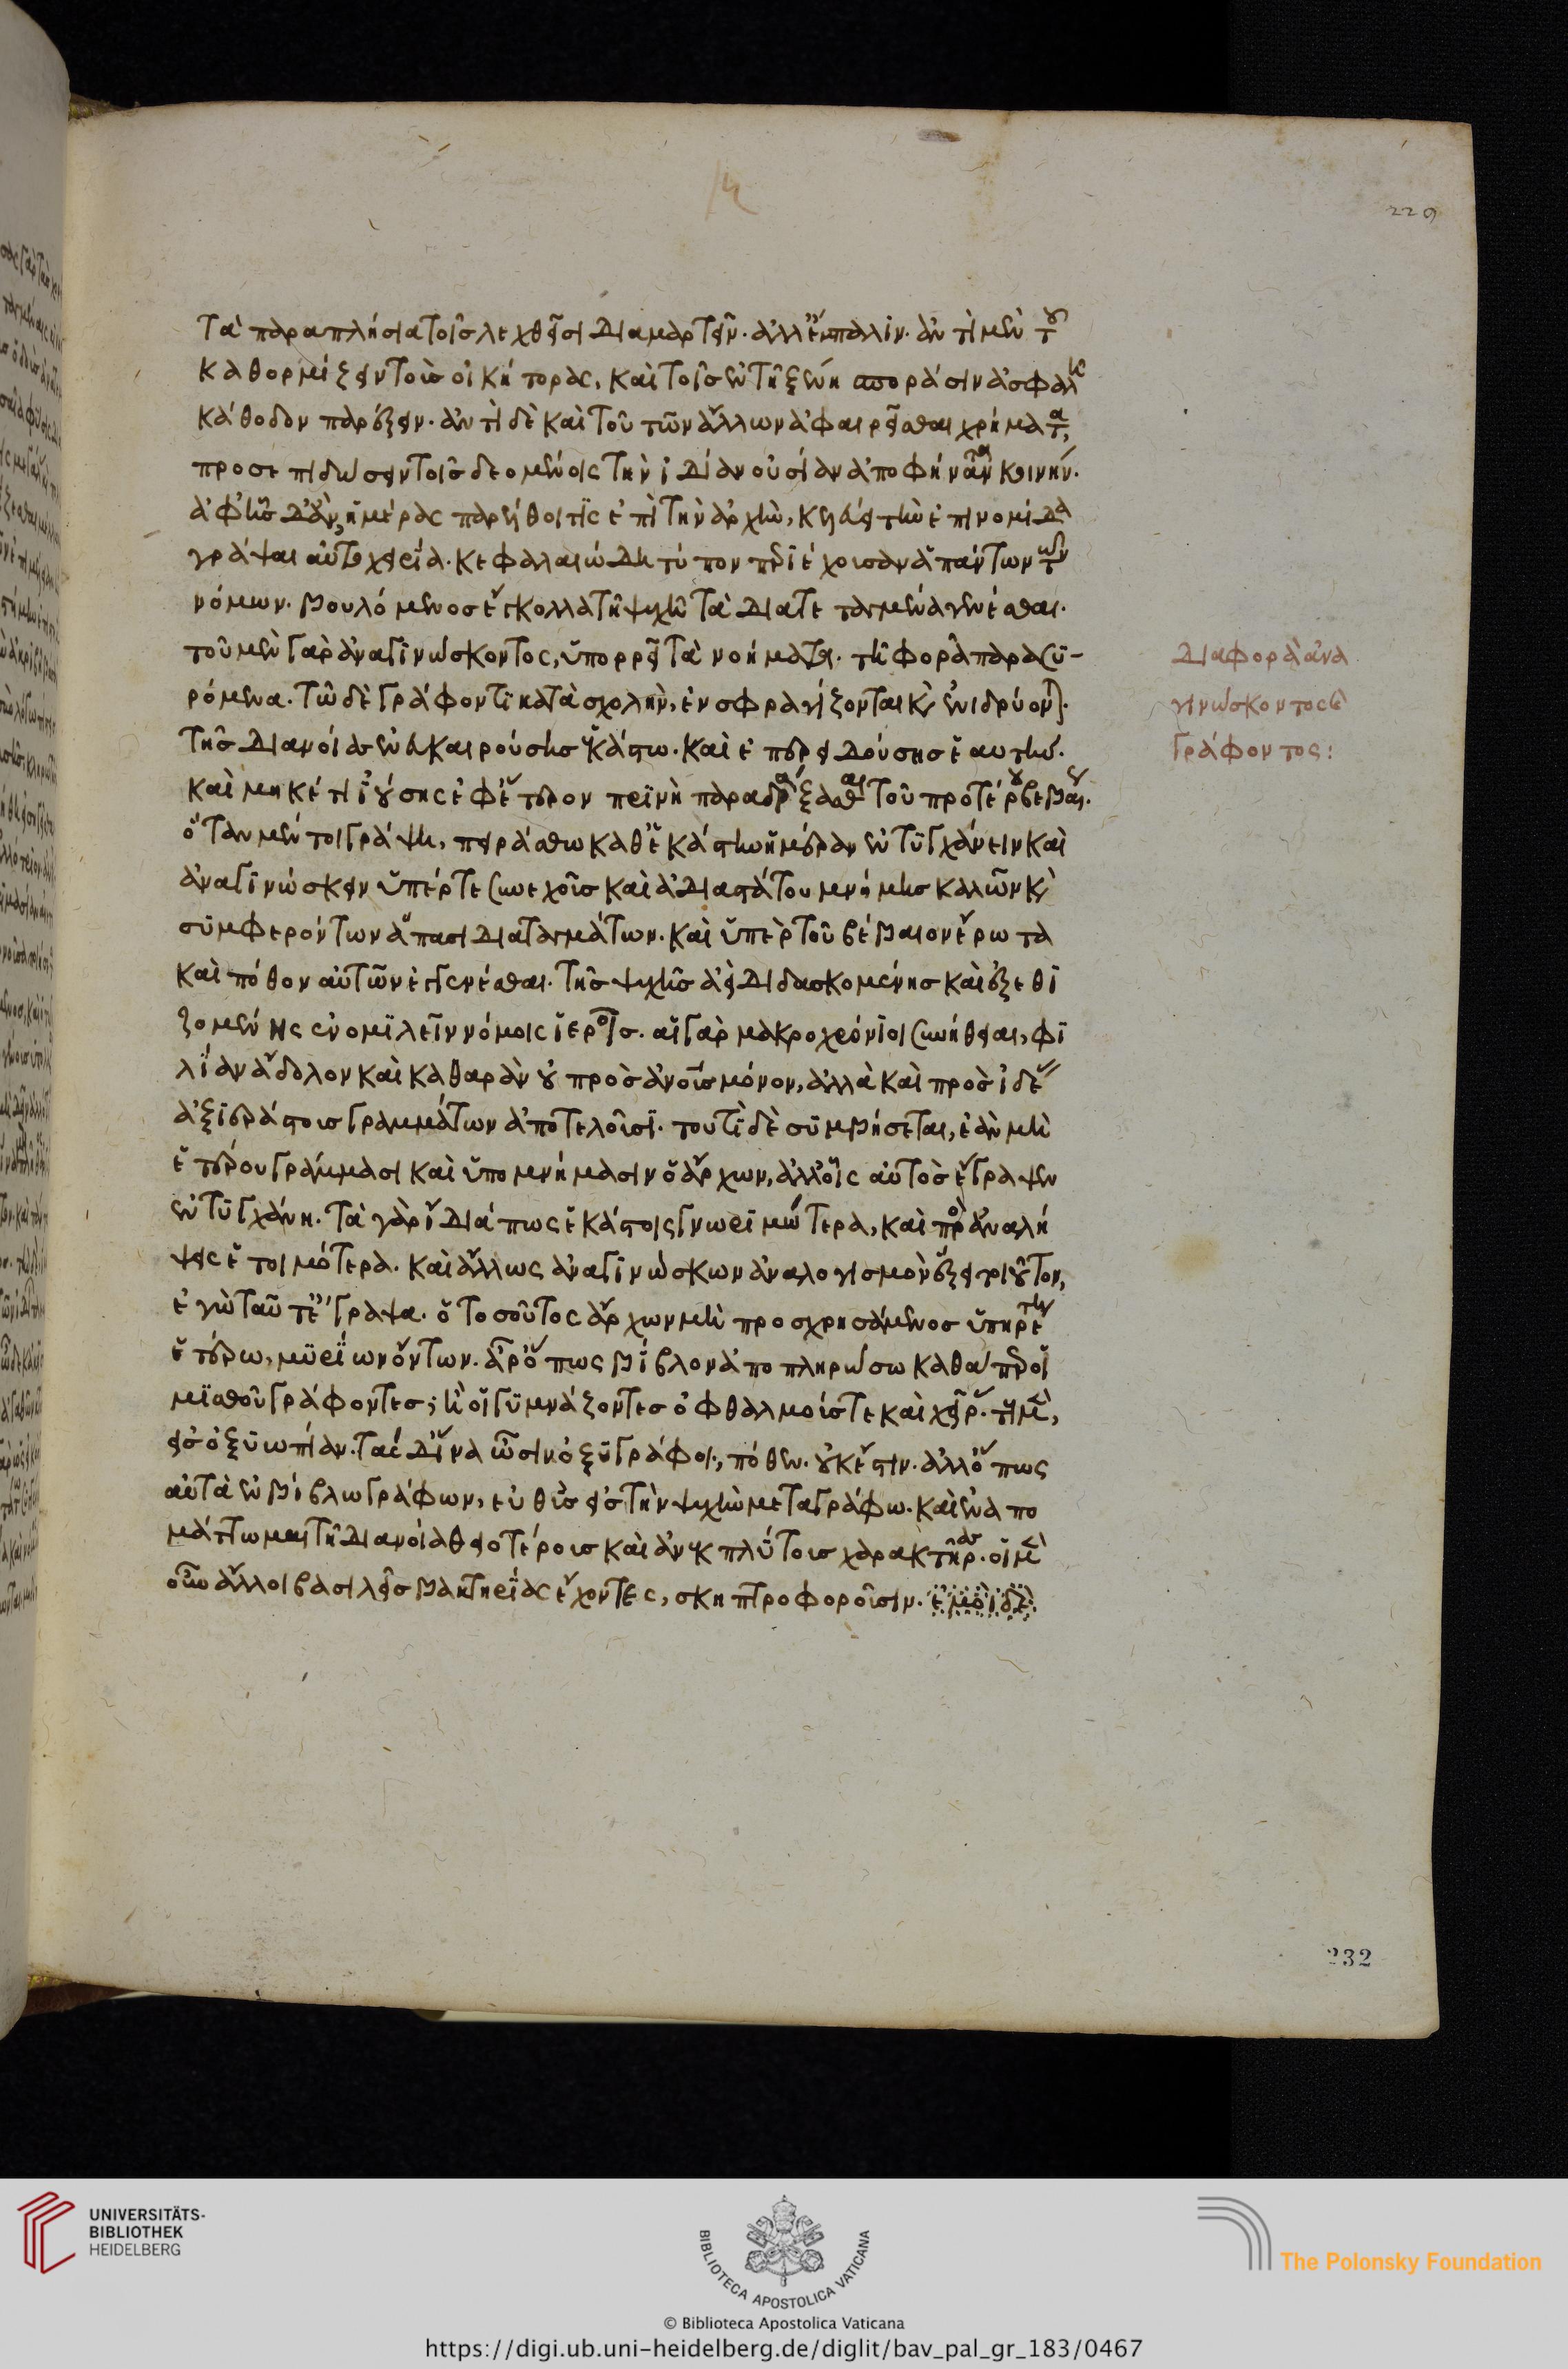 τὰ παραπλήσια τοῖς λεχθεῖσι διαμαρτεῖν. ἀλλ' ἔμπαλιν. ἀντὶ μὲν τοῦ
καθορμίζειν τοὺς οἰκήτορας, καὶ τοῖς ἐν τῇ ξένῃ σποράσιν ἀσφαλῆ
κάθοδον παρέξειν. ἀντὶ δὲ καὶ τοῦ τῶν ἄλλων ἀφαιρεῖσθαι χρήματα,
προσεπιδώσειν τοῖς δεομένοις τὴν ἰδίαν οὐσίαν ἀποφήναντα κοινήν.
ἀφ' ἧς δ' ἂν ἡμέρας παρέλθοι τις ἐπὶ τὴν ἀρχὴν, κελεύει τὴν ἐπινομίδα
γράψαι αὐτοχειρία. κεφαλαιώδη τύπον περιέχουσαν ἁπάντων τῶν
νόμων. βουλόμενος ἔγκολλα τῇ ψυχῇ τὰ διατεταγμένα γενέσθαι.
τοῦ μὲν γὰρ ἀναγινώσκοντος, ὑπορρεῖ τὰ νοήματα. τῇ φορᾷ παρασυ-
ρόμενα. τῶ δὲ γράφοντι κατὰ σχολὴν, ἐνσφραγίζονται καὶ ἐνιδρύονται.
τῆς διανοίας ἐνευκαιρούσης ἑκάστω. καὶ ἐπερειδούσης ἑαυτὴν.
καὶ μηκέτι ἰούσης ἐφ' ἕτερον πρινὴ παραδράξασθαι τοῦ προτέρου βεβαί.
ὅταν μέντοι γράψη, πειράσθω καθ' ἑκάστην ἡμέραν ἐντυγχάνειν καὶ
ἀναγινώσκειν ὑπέρ τε συνεχοῦς καὶ ἀδιαστάτου μνήμης καλῶν καὶ
συμφερόντων ἅπασι διαταγμάτων. καὶ ὑπὲρ τοῦ βέβαιον ἔρωτα
καὶ πόθον αὐτῶν ἐγγενέσθαι. τῆς ψυχῆς ἀεὶ διδασκομένης καὶ ἐξεθι
ζομένης ἐνομιλεῖν νόμοις ἱεροῖς. αἱ γὰρ μακροχρόνιοι συνήθειαι, φι
λίαν ἄδολον καὶ καθαρὰν οὐ πρὸς ἀνοῖς μόνον, ἀλλὰ καὶ πρὸς ἰδέ
ἀξιεράστοις γραμμάτων ἀποτελοῦσι. τουτὶ δὲ συμβήσεται, ἐὰν μὴ
ἑτέρου γράμμασι καὶ ὑπομνήμασιν ὁ ἄρχων, ἀλλ' οἷς αὐτὸς ἔγραψεν
ἐντυγχάνη. τὰ γὰρ ἴδιά πως ἑκάστοις γνωριμώτερα, καὶ πρὸς ἀναλή
ψεις ἑτοιμότερα. καὶ ἄλλως ἀναγινώσκων ἀναλογισμὸν ἕξει τοιοῦτον,
ἐγὼ ταῦτ' ἔγραψα. ὁ τοσοῦτος ἄρχων μὴ προσχρησάμενος ὑπηρέτη
ἑτέρω, μυρίων ὄντων. ἆρ' ὅπως βίβλον ἀποπληρώσω καθάπερ οἱ
μισθοῦ γράφοντες; ἢ οἱ γυμνάζοντες ὀφθαλμούς τε καὶ χεῖρ. τοὺς μὲν,
εἰς ὀξυωπίαν. τὰς δ' ἵνα ὦσιν ὀξυγράφοι, πόθεν. οὐκ ἔστιν. ἀλλ' ὅπως
αὐτὰ ἐν βίβλω γράφων, εὐθὺς εἰς τὴν ψυχὴν μεταγράφω. καὶ ἐναπο
μάττωμαι τῇ διανοία θειοτέροις καὶ ἀνεκπλύτοις χαρακτῆρας. οἱ μὲν
οὖν ἄλλοι βασιλεῖς βακτηρίας ἔχοντες, σκηπτροφοροῦσιν. ἐμοὶ δὲ
διαφορὰ ἀνα
γινώσκοντος καὶ
γράφοντος:
229
232
UNIVERSITÄTS-
BIBLIOTHEK
HEIDELBERG
BIBLIOTECA APOSTOLICA VATICANA
© Biblioteca Apostolica Vaticana
The Polonsky Foundation
https://digi.ub.uni-heidelberg.de/diglit/bav_pal_gr_183/0467